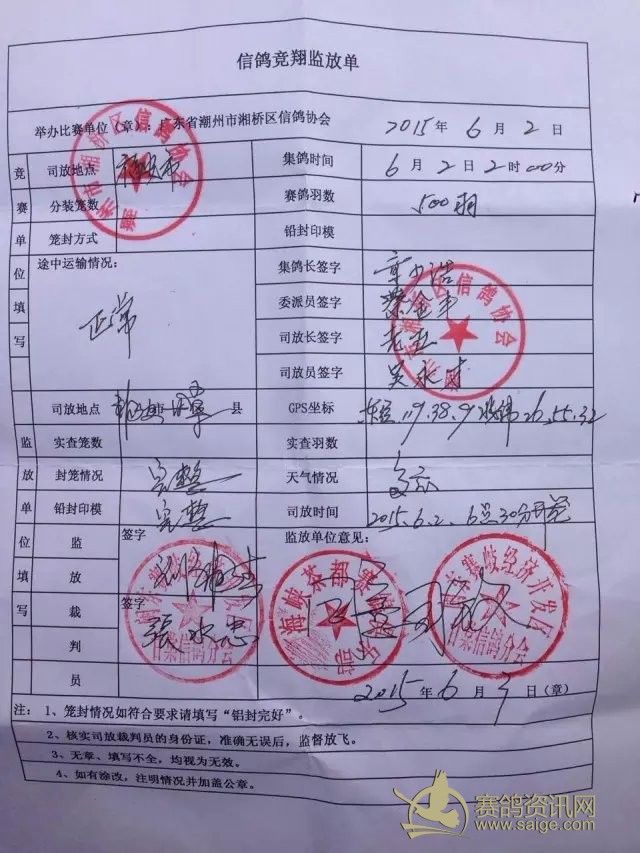 信鸽竞翔监放单
举办比赛单位（章）：广东省潮州市湘桥区信鸽协会 2015年6月2日
竞赛单位填写
司放地点 福安市 集鸽时间 6月2日2时00分
分装笼数 赛鸽羽数 500羽
笼封方式 铅封印模
途中运输情况： 正常
集鸽长签字
委派员签字
司放长签字
司放员签字 吴永才
监放单位填写
司放地点 县 GPS坐标 东经119.38.9 北纬26.55.32
实查笼数 实查羽数
封笼情况 完整 天气情况 多云
铅封印模 完整 司放时间 2015.6.2.6点30分开笼
监放裁判员
签字
签字 張水忠
监放单位意见：
2015年6月3日（章）
注： 1、笼封情况如符合要求请填写“铝封完好”。
2、核实司放裁判员的身份证，准确无误后，监督放飞。
3、无章、填写不全，均视为无效。
4、如有涂改，注明情况并加盖公章。
湘桥区信鸽协会
湘桥区信鸽协会
赛岐经济开发区
甘棠信鸽分会
海峡茶都赛
赛岐经济开发区
甘棠信鸽分会
赛鸽资讯网
www.saige.com